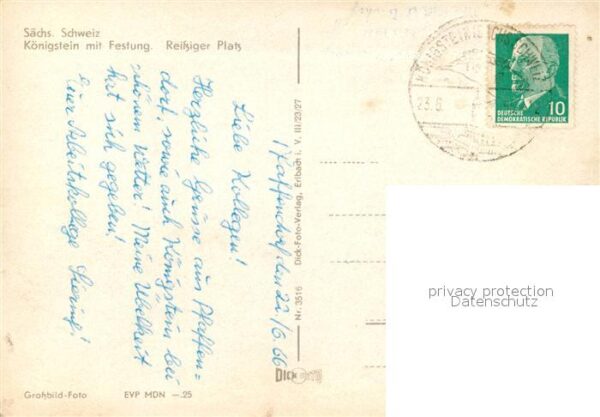 Sächs. Schweiz
Königstein mit Festung. Reißiger Platz
Pfaffendorf, den 22/6.66
Liebe Kollegen!
Herzliche Grüsse aus Pfaffen=
dorf, sowie auch Königstein bei
schönem Wetter! Meine Übelkeit
hat sich gegeben!
Euer Arbeitskollege
Großbild-Foto EVP MDN —.25
Nr. 3516 Dick-Foto-Verlag, Erlbach i. V. III/23/27
DICK FOTO
KÖNIGSTEIN (SÄCHS SCHWEIZ)
23.6
10
DEUTSCHE
DEMOKRATISCHE REPUBLIK
privacy protection
Datenschutz